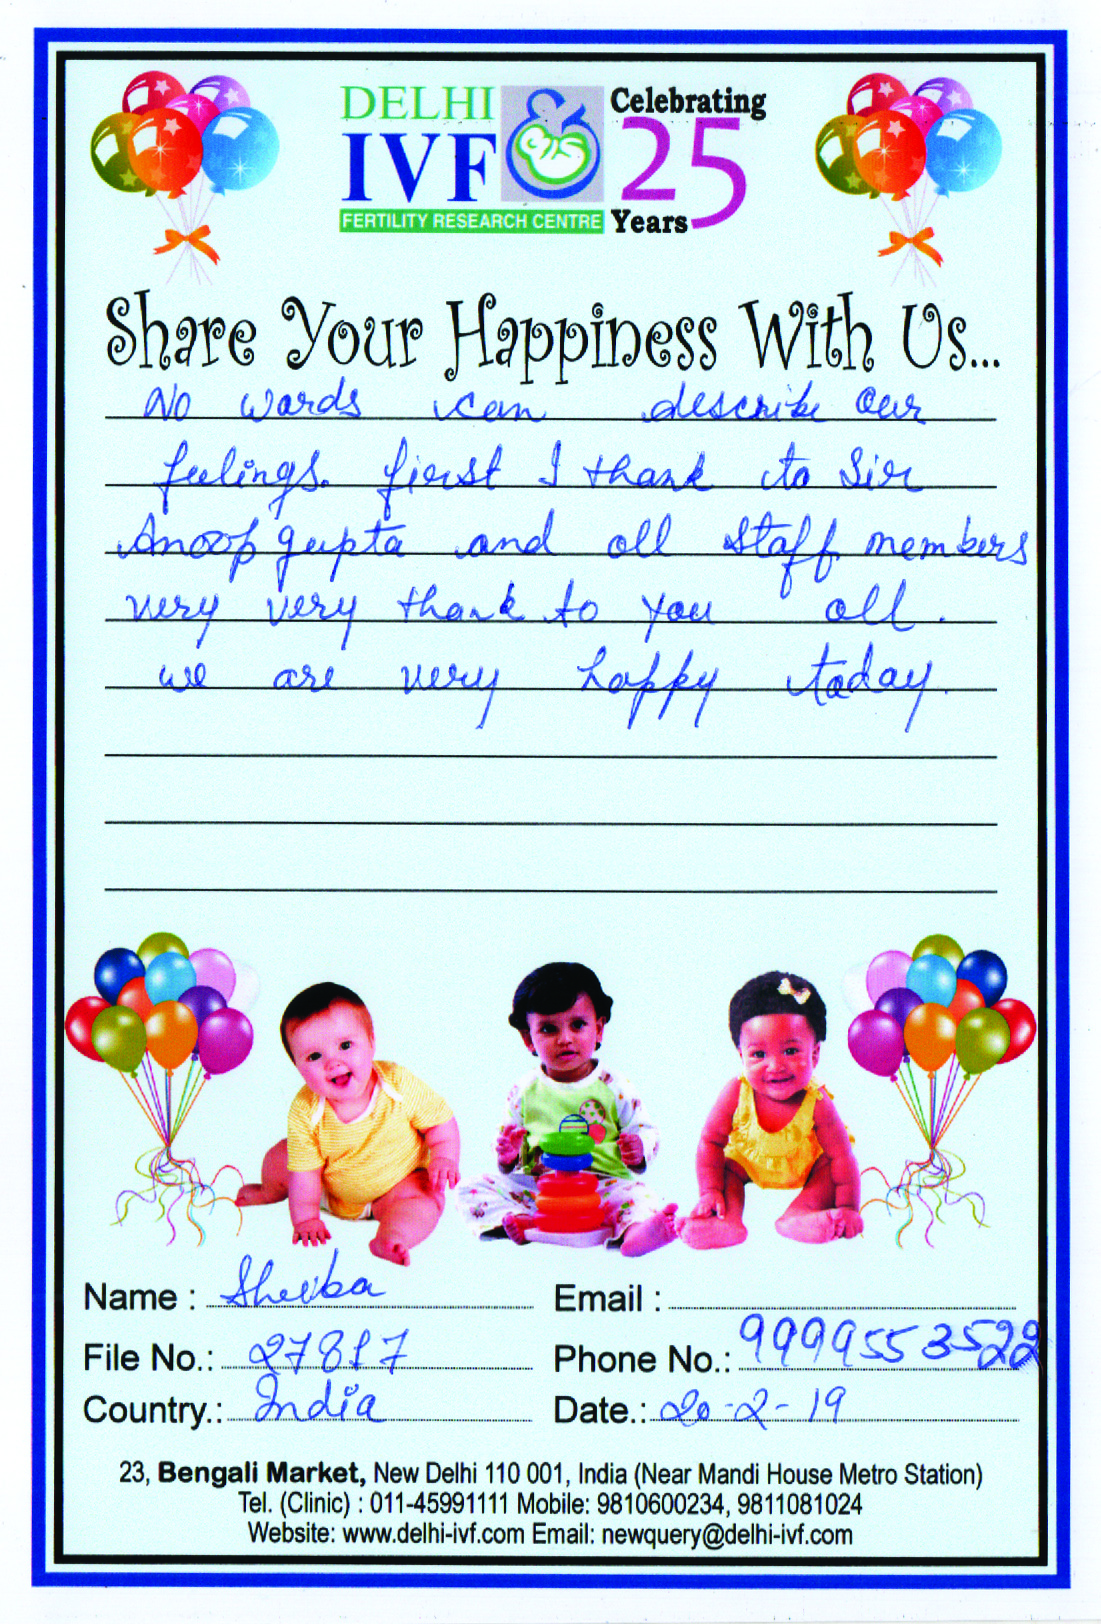 DELHI
IVF
FERTILITY RESEARCH CENTRE
Celebrating
25
Years
Share Your Happiness With Us...
No words can describe our
feelings. first I thank to Sir
Anoop gupta and all staff members
very very thank to you all.
we are very happy today.
Name : Sheeba
Email :
File No.: 27817
Phone No.: 9999553522
Country.: India
Date.: 20-2-19
23, Bengali Market, New Delhi 110 001, India (Near Mandi House Metro Station)
Tel. (Clinic) : 011-45991111 Mobile: 9810600234, 9811081024
Website: www.delhi-ivf.com Email: newquery@delhi-ivf.com